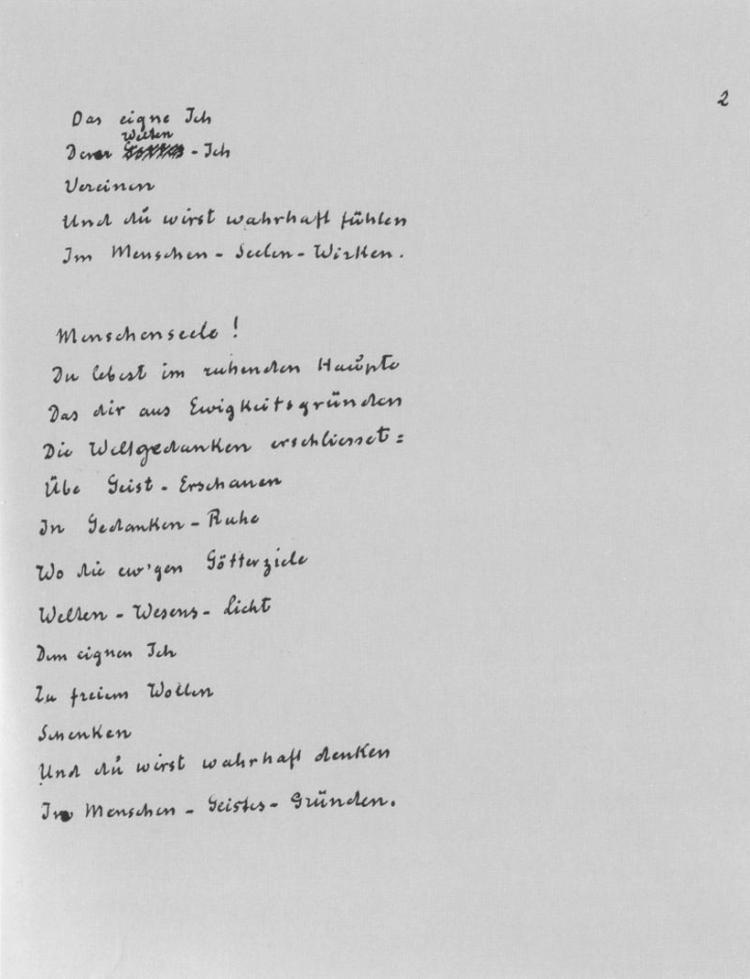 2
Das eigne Ich
Welten
Dem - Ich
Vereinen
Und du wirst wahrhaft fühlen
Im Menschen - Seelen - Wirken.
Menschenseele!
Du lebest im ruhenden Haupte
Das dir aus Ewigkeitsgründen
Die Weltgedanken erschliesset:
Übe Geist - Erschauen
In Gedanken - Ruhe
Wo die ew'gen Götterziele
Welten - Wesens - Licht
Dem eignen Ich
Zu freiem Wollen
Schenken
Und du wirst wahrhaft denken
In Menschen - Geistes - Gründen.